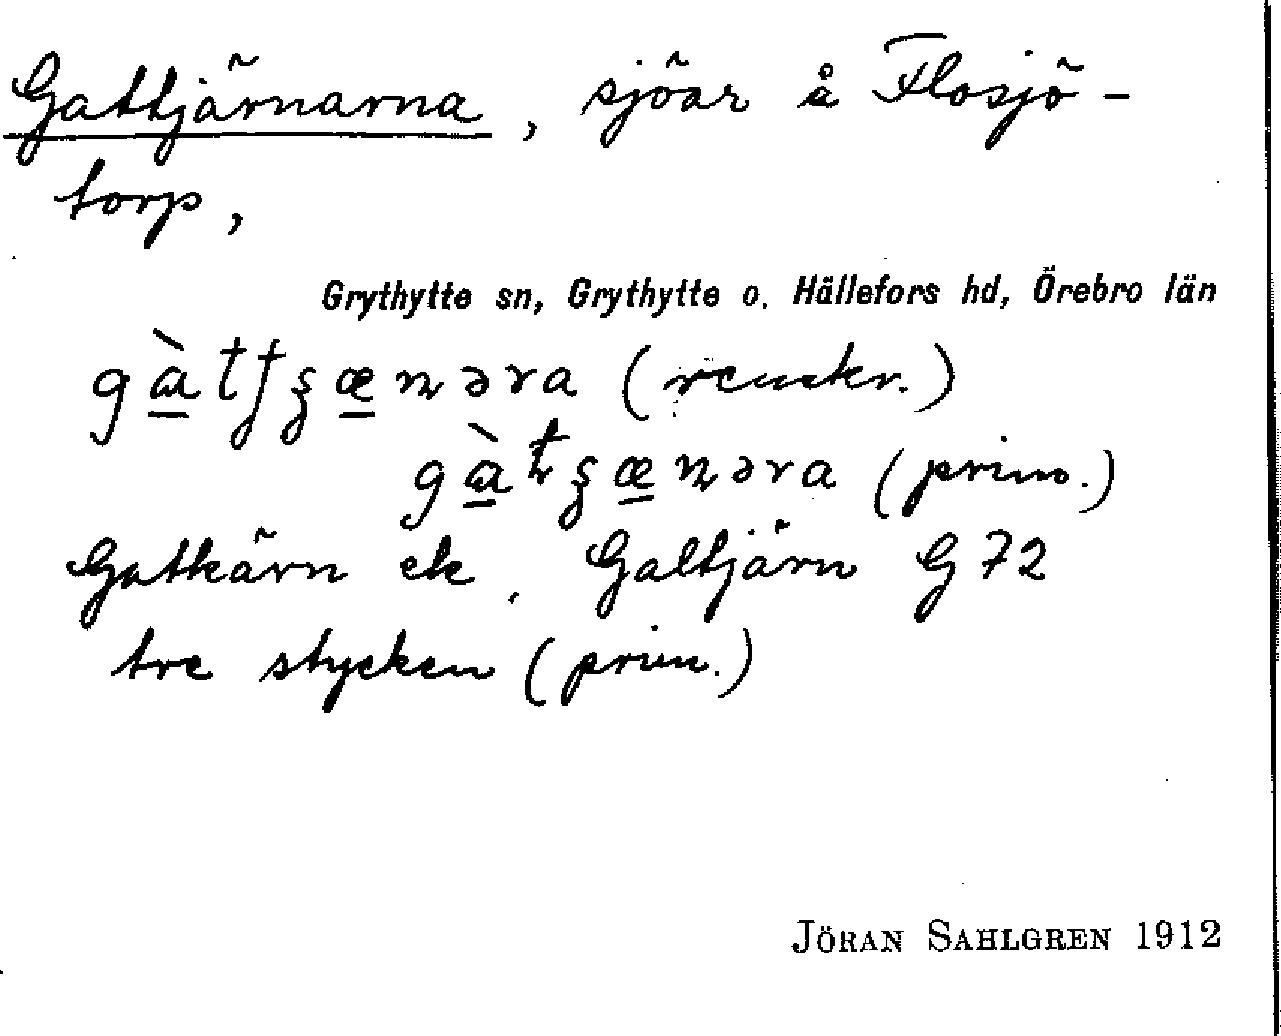 Gattjärnarna, sjöar å Flosjö-
torp,
Grythytte sn, Grythytte o. Hällefors hd, Örebro län
(renskr.)
(prim.)
Gatkärn ek. Galtjärn G 72
tre stycken (prim.)
JÖRAN SAHLGREN 1912